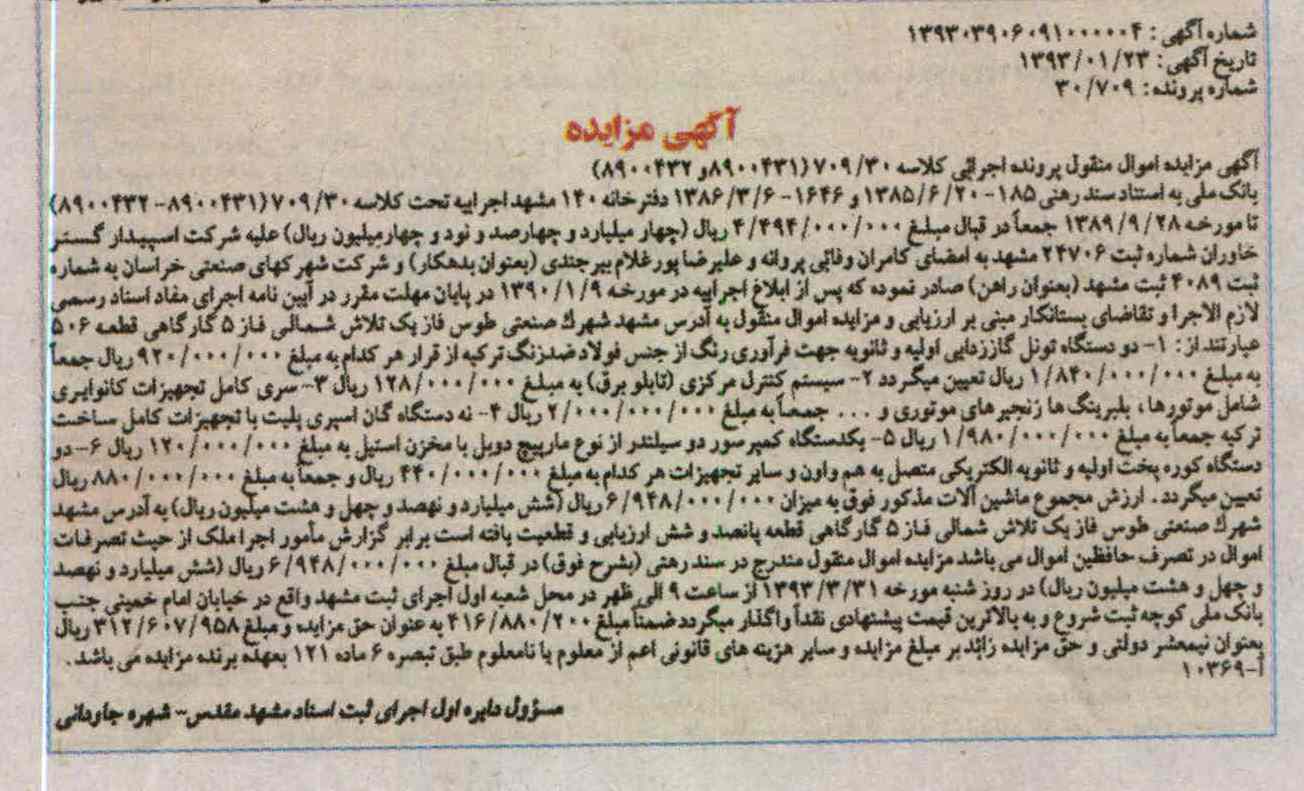 شماره آگهی: ۱۳۹۳۰۳۹۰۶۰۹۱۰۰۰۰۰۴
تاریخ آگهی: ۱۳۹۳/۰۱/۲۳
شماره پرونده: ۳۰/۷۰۹
آگهی مزایده
آگهی مزایده اموال منقول پرونده اجرائی کلاسه ۷۰۹/۳۰ (۸۹۰۰۴۳۱و ۸۹۰۰۴۳۲)
بانک ملی به استناد سند رهنی ۱۸۵-۱۳۸۵/۶/۲۰ و ۱۶۴۶-۱۳۸۶/۳/۶ دفترخانه ۱۴۰ مشهد اجراییه تحت کلاسه ۷۰۹/۳۰ (۸۹۰۰۴۳۱-۸۹۰۰۴۳۲)
تا مورخه ۱۳۸۹/۹/۲۸ جمعاً در قبال مبلغ ۴/۴۹۴/۰۰۰/۰۰۰ ریال (چهار میلیارد و چهارصد و نود و چهارمیلیون ریال) علیه شرکت اسپیدار گستر
خاوران شماره ثبت ۲۴۷۰۶ مشهد به امضای کامران وفائی پروانه و علیرضا پورغلام بیرجندی (بعنوان بدهکار) و شرکت شهرکهای صنعتی خراسان به شماره
ثبت ۴۰۸۹ ثبت مشهد (بعنوان راهن) صادر نموده که پس از ابلاغ اجراییه در مورخه ۱۳۹۰/۱/۹ در پایان مهلت مقرر در آیین نامه اجرای مفاد اسناد رسمی
لازم الاجرا و تقاضای بستانکار مبنی بر ارزیابی و مزایده اموال منقول به آدرس مشهد شهرک صنعتی طوس فاز یک تلاش شمالی فاز ۵ کارگاهی قطعه ۵۰۶
عبارتند از: ۱- دو دستگاه تونل گاززدایی اولیه و ثانویه جهت فرآوری رنگ از جنس فولاد ضدزنگ ترکیه از قرار هر کدام به مبلغ ۹۲۰/۰۰۰/۰۰۰ ریال جمعاً
به مبلغ ۱/۸۴۰/۰۰۰/۰۰۰ ریال تعیین میگردد ۲- سیستم کنترل مرکزی (تابلو برق) به مبلغ ۱۲۸/۰۰۰/۰۰۰ ریال ۳- سری کامل تجهیزات کانوایری
شامل موتورها، بلبرینگ ها زنجیرهای موتوری و ... جمعاً به مبلغ ۲/۰۰۰/۰۰۰/۰۰۰ ریال ۴- نه دستگاه گان اسپری پلیت با تجهیزات کامل ساخت
ترکیه جمعاً به مبلغ ۱/۹۸۰/۰۰۰/۰۰۰ ریال ۵- یکدستگاه کمپرسور دو سیلندر از نوع مارپیچ دوبل با مخزن استیل به مبلغ ۱۲۰/۰۰۰/۰۰۰ ریال ۶- دو
دستگاه کوره پخت اولیه و ثانویه الکتریکی متصل به هم واون و سایر تجهیزات هر کدام به مبلغ ۴۴۰/۰۰۰/۰۰۰ ریال و جمعاً به مبلغ ۸۸۰/۰۰۰/۰۰۰ ریال
تعیین میگردد. ارزش مجموع ماشین آلات مذکور فوق به میزان ۶/۹۴۸/۰۰۰/۰۰۰ ریال (شش میلیارد و نهصد و چهل و هشت میلیون ریال) به آدرس مشهد
شهرک صنعتی طوس فاز یک تلاش شمالی فاز ۵ کارگاهی قطعه پانصد و شش ارزیابی و قطعیت یافته است برابر گزارش مأمور اجرا ملک از حیث تصرفات
اموال در تصرف حافظین اموال می باشد مزایده اموال منقول مندرج در سند رهنی (بشرح فوق) در قبال مبلغ ۶/۹۴۸/۰۰۰/۰۰۰ ریال (شش میلیارد و نهصد
و چهل و هشت میلیون ریال) در روز شنبه مورخه ۱۳۹۳/۳/۳۱ از ساعت ۹ الی ظهر در محل شعبه اول اجرای ثبت مشهد واقع در خیابان امام خمینی جنب
بانک ملی کوچه ثبت شروع و به بالاترین قیمت پیشنهادی نقداً واگذار میگردد ضمناً مبلغ ۴۱۶/۸۸۰/۲۰۰ به عنوان حق مزایده و مبلغ ۳۱۲/۶۰۷/۹۵۸ ریال
بعنوان نیمعشر دولتی و حق مزایده زائد بر مبلغ مزایده و سایر هزینه های قانونی اعم از معلوم یا نامعلوم طبق تبصره ۶ ماده ۱۲۱ بعهده برنده مزایده می باشد.
آ-۱۰۳۶۹
مسؤول دایره اول اجرای ثبت اسناد مشهد مقدس- شهره جاودانی